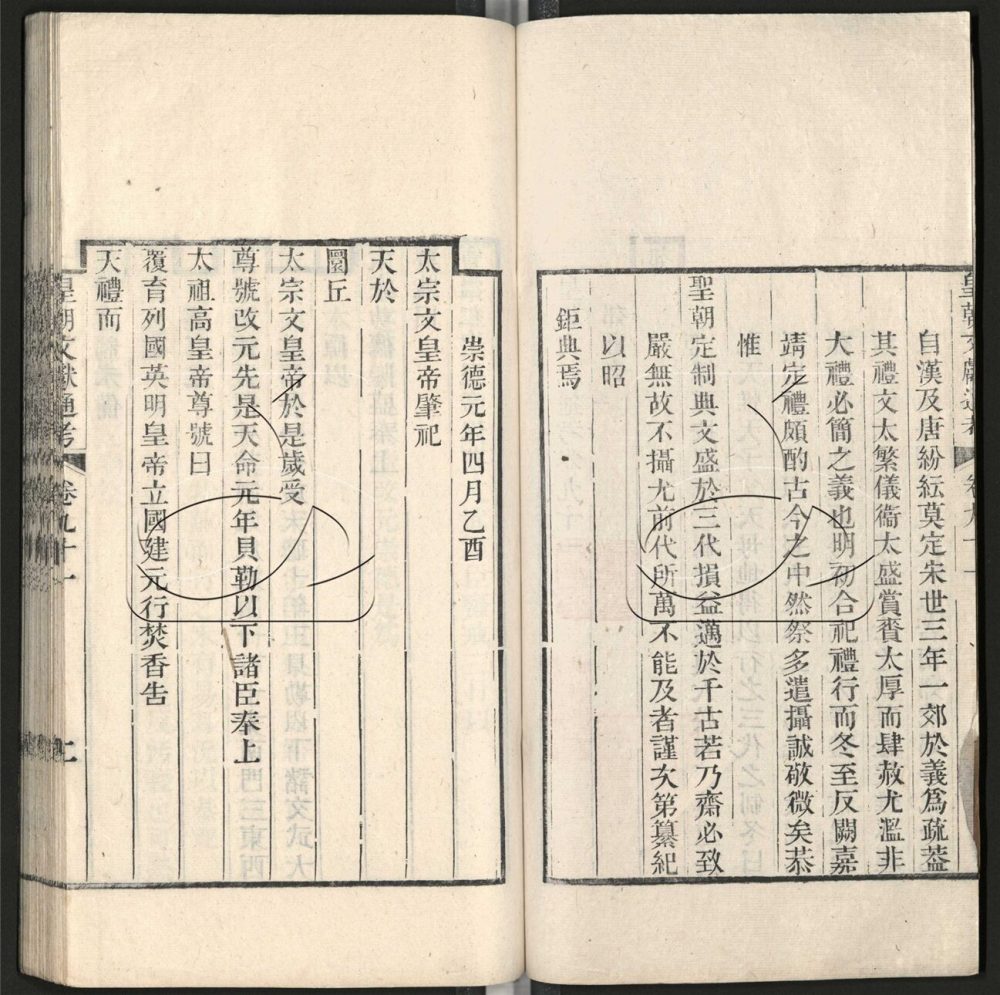 皇朝文獻通考 卷九十一
自漢及唐紛紜莫定宋世三年一郊於義爲疏蓋
其禮文太繁儀衞太盛賞賚太厚而肆赦尤濫非
大禮必簡之義也明初合祀禮行而冬至反闕嘉
靖定禮頗酌古今之中然祭多遣攝誠敬微矣恭
惟
聖朝定制典文盛於三代損益邁於千古若乃齋必致
嚴無故不攝尤前代所萬不能及者謹次第纂紀
以昭
鉅典焉
崇德元年四月乙酉
太宗文皇帝肇祀
天於
圜丘
太宗文皇帝於是歲受
尊號改元先是天命元年貝勒以下諸臣奉上
太祖高皇帝尊號曰
覆育列國英明皇帝立國建元行焚香告
天禮而
皇朝文獻通考 卷九十一